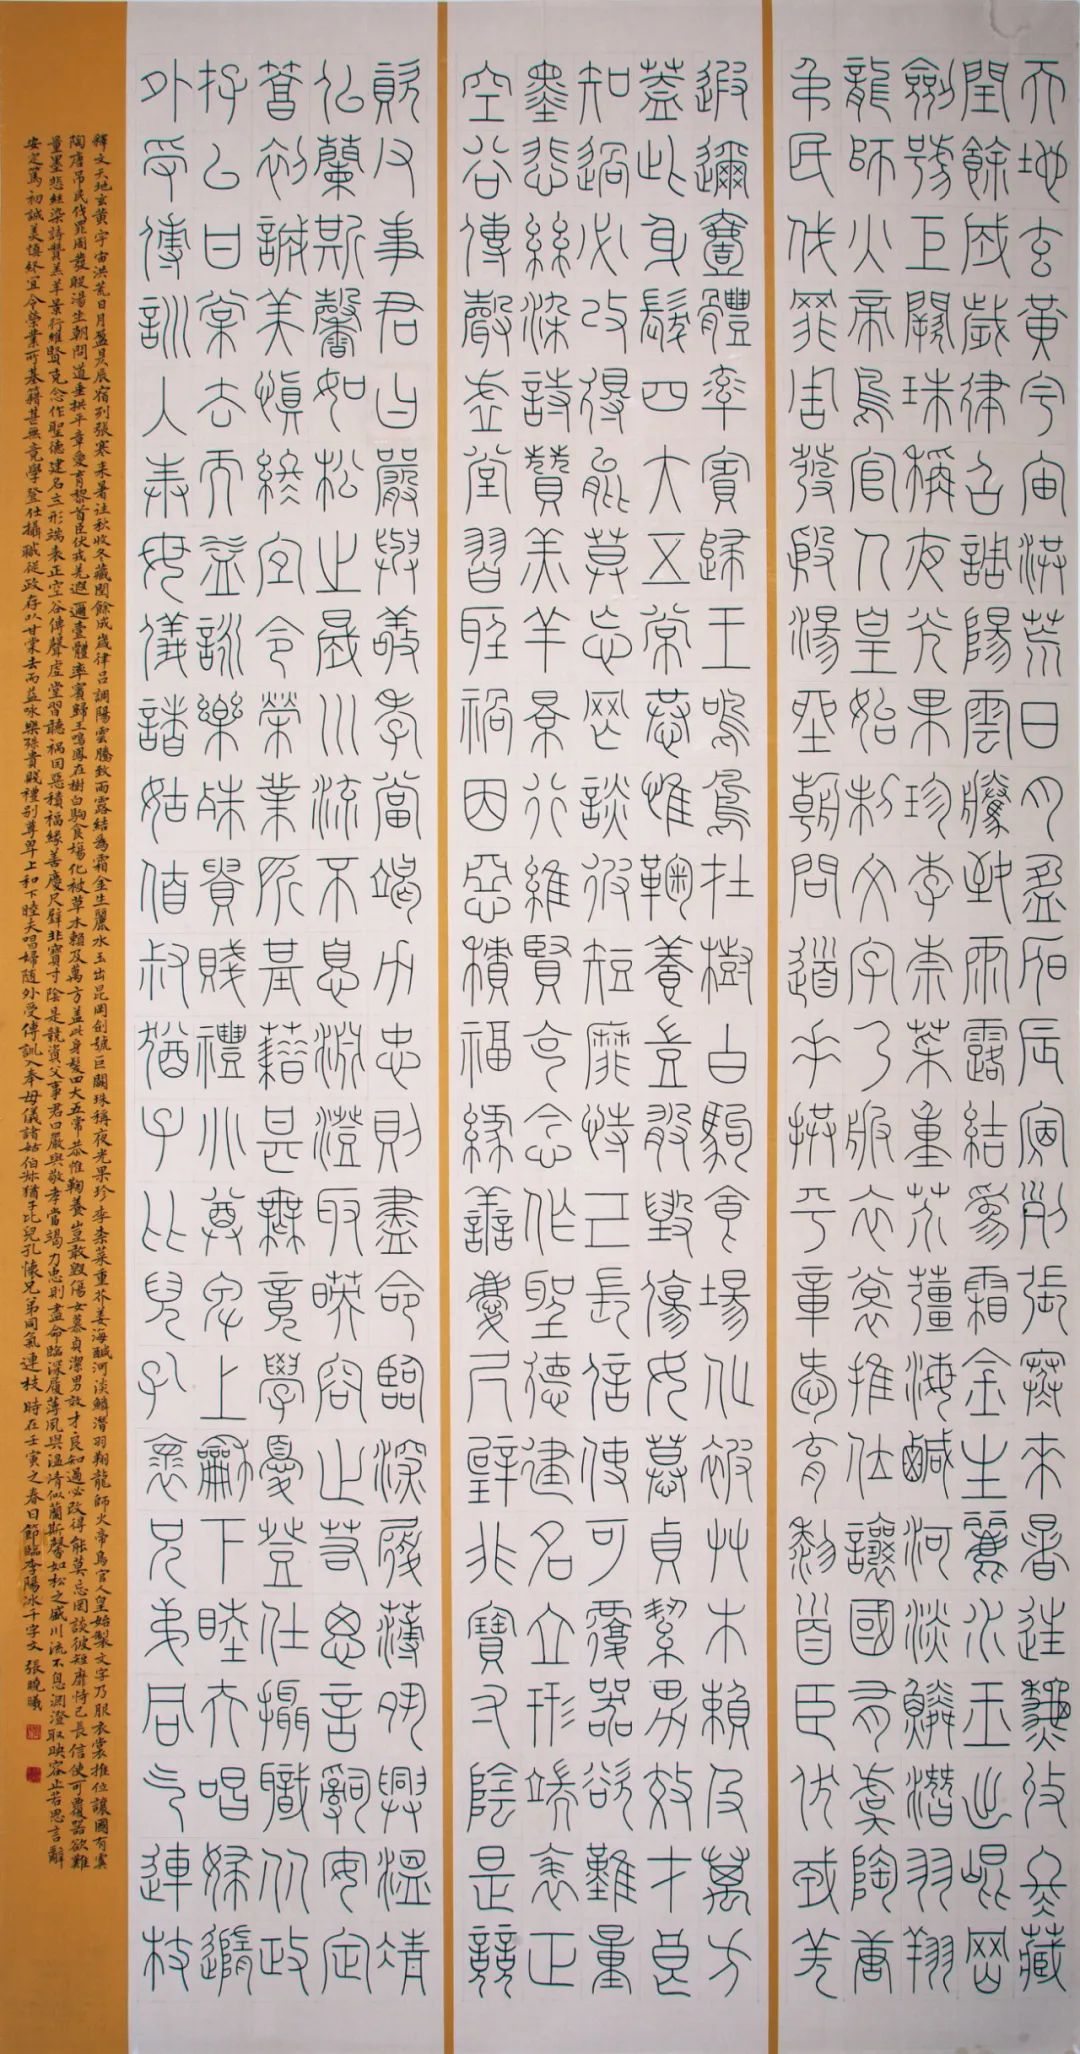 天地玄黃宇宙洪荒日月盈昃辰宿列張寒來暑往秋收冬藏
閏餘成歲律呂調陽雲騰致雨露結為霜金生麗水玉出崐岡
劍號巨闕珠稱夜光果珍李柰菜重芥薑海鹹河淡鱗潛羽翔
龍師火帝鳥官人皇始制文字乃服衣裳推位讓國有虞陶唐
弔民伐罪周發殷湯坐朝問道垂拱平章愛育黎首臣伏戎羌
遐邇壹體率賓歸王鳴鳳在樹白駒食場化被草木賴及萬方
蓋此身髮四大五常恭惟鞠養豈敢毀傷女慕貞潔男效才良
知過必改得能莫忘罔談彼短靡恃己長信使可覆器欲難量
墨悲絲染詩讚羔羊景行維賢克念作聖德建名立形端表正
空谷傳聲虛堂習聽禍因惡積福緣善慶尺璧非寶寸陰是競
資父事君曰嚴與敬孝當竭力忠則盡命臨深履薄夙興溫凊
似蘭斯馨如松之盛川流不息淵澄取映容止若思言辭安定
篤初誠美慎終宜令榮業所基藉甚無竟學優登仕攝職從政
存以甘棠去而益詠樂殊貴賤禮別尊卑上和下睦夫唱婦隨
外受傅訓入奉母儀諸姑伯叔猶子比兒孔懷兄弟同氣連枝
釋文天地玄黃宇宙洪荒日月盈昃辰宿列張寒來暑往秋收冬藏閏餘成歲律呂調陽雲騰致雨露結為霜金生麗水玉出昆岡劍號巨闕珠稱夜光果珍李柰菜重芥姜海鹹河淡鱗潛羽翔龍師火帝鳥官人皇始製文字乃服衣裳推位讓國有虞
陶唐吊民伐罪周發殷湯坐朝問道垂拱平章愛育黎首臣伏戎羌遐邇壹體率賓歸王鳴鳳在樹白駒食場化被草木賴及萬方蓋此身髮四大五常恭惟鞠養豈敢毀傷女慕貞潔男效才良知過必改得能莫忘罔談彼短靡恃己長信使可覆器欲難
量墨悲絲染詩贊羔羊景行維賢克念作聖德建名立形端表正空谷傳聲虛堂習聽禍因惡積福緣善慶尺璧非寶寸陰是競資父事君曰嚴與敬孝當竭力忠則盡命臨深履薄夙興溫清似蘭斯馨如松之盛川流不息淵澄取映容止若思言辭
安定篤初誠美慎終宜令榮業所基籍甚無竟學登仕攝職從政存以甘棠去而益咏樂殊貴賤禮別尊卑上和下睦夫唱婦隨外受傅訓入奉母儀諸姑伯叔猶子比兒孔懷兄弟同氣連枝 時在壬寅之春日節臨李陽冰千字文 張曉曦